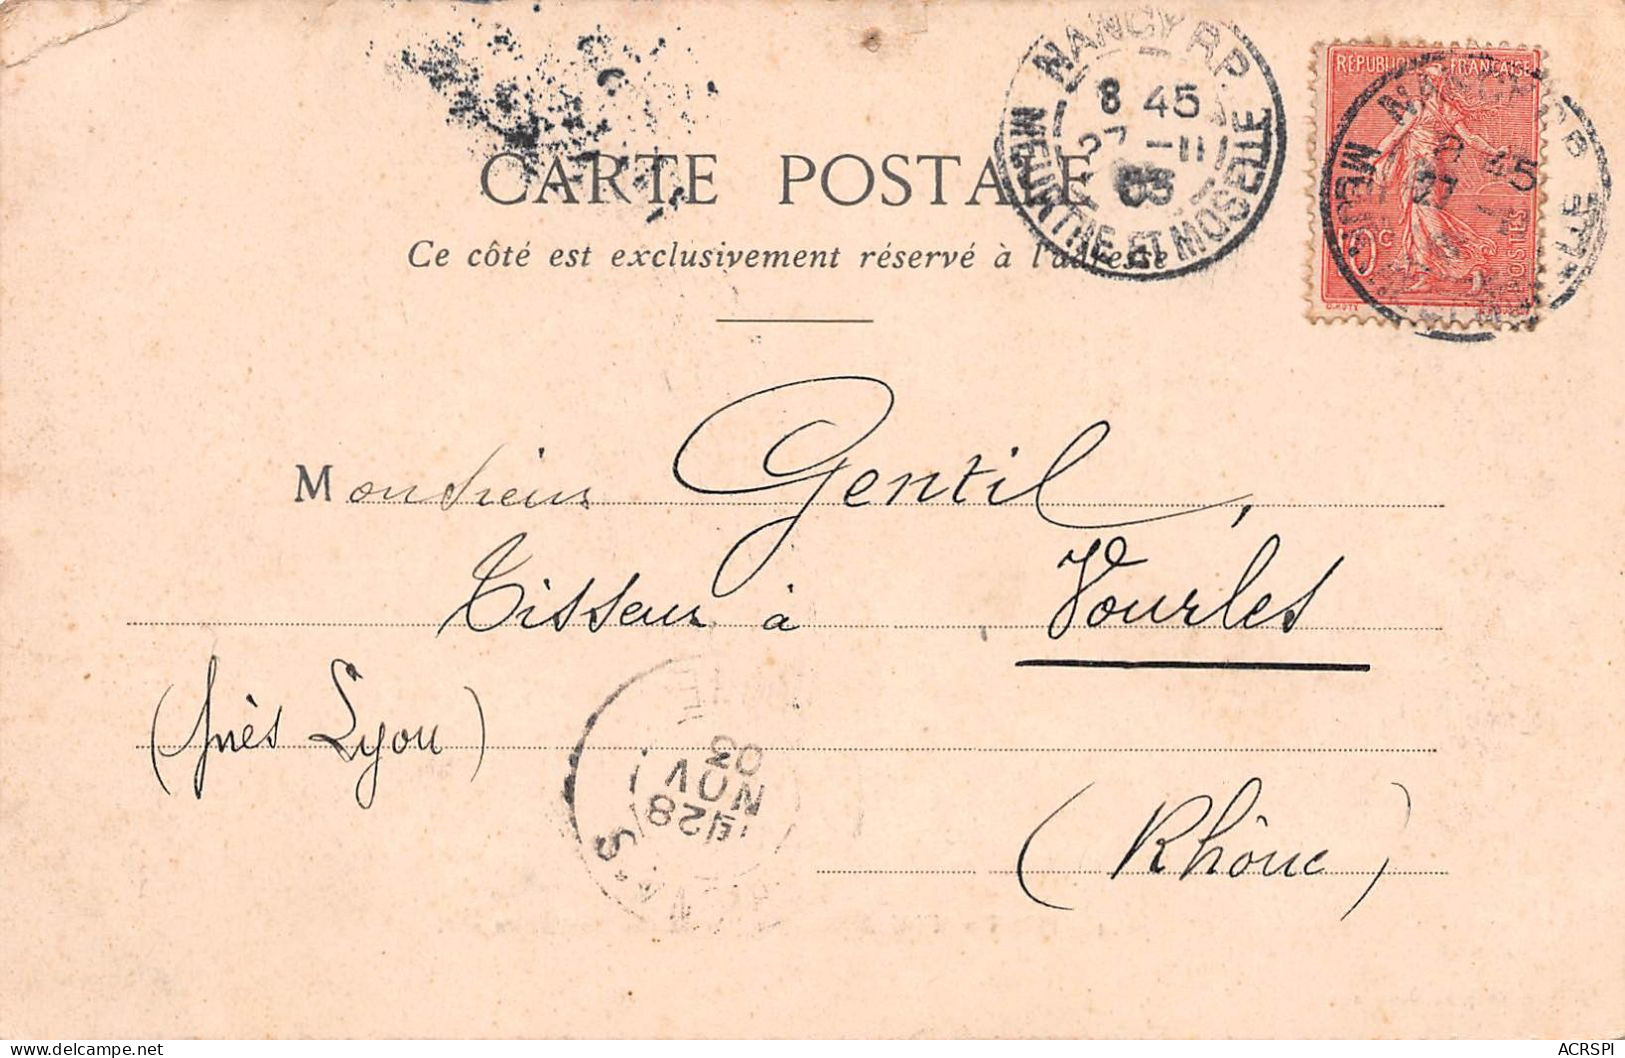 NANCY R.P.
8 45
27 -11
03
MEURTHE ET MOSELLE
REPUBLIQUE FRANÇAISE
10c
POSTES
CARTE POSTALE
Ce côté est exclusivement réservé à l'adresse
Monsieur Gentil,
Tisseur à Vourles
(près Lyon)
(Rhône)
28
NOV
03
ACRSPI